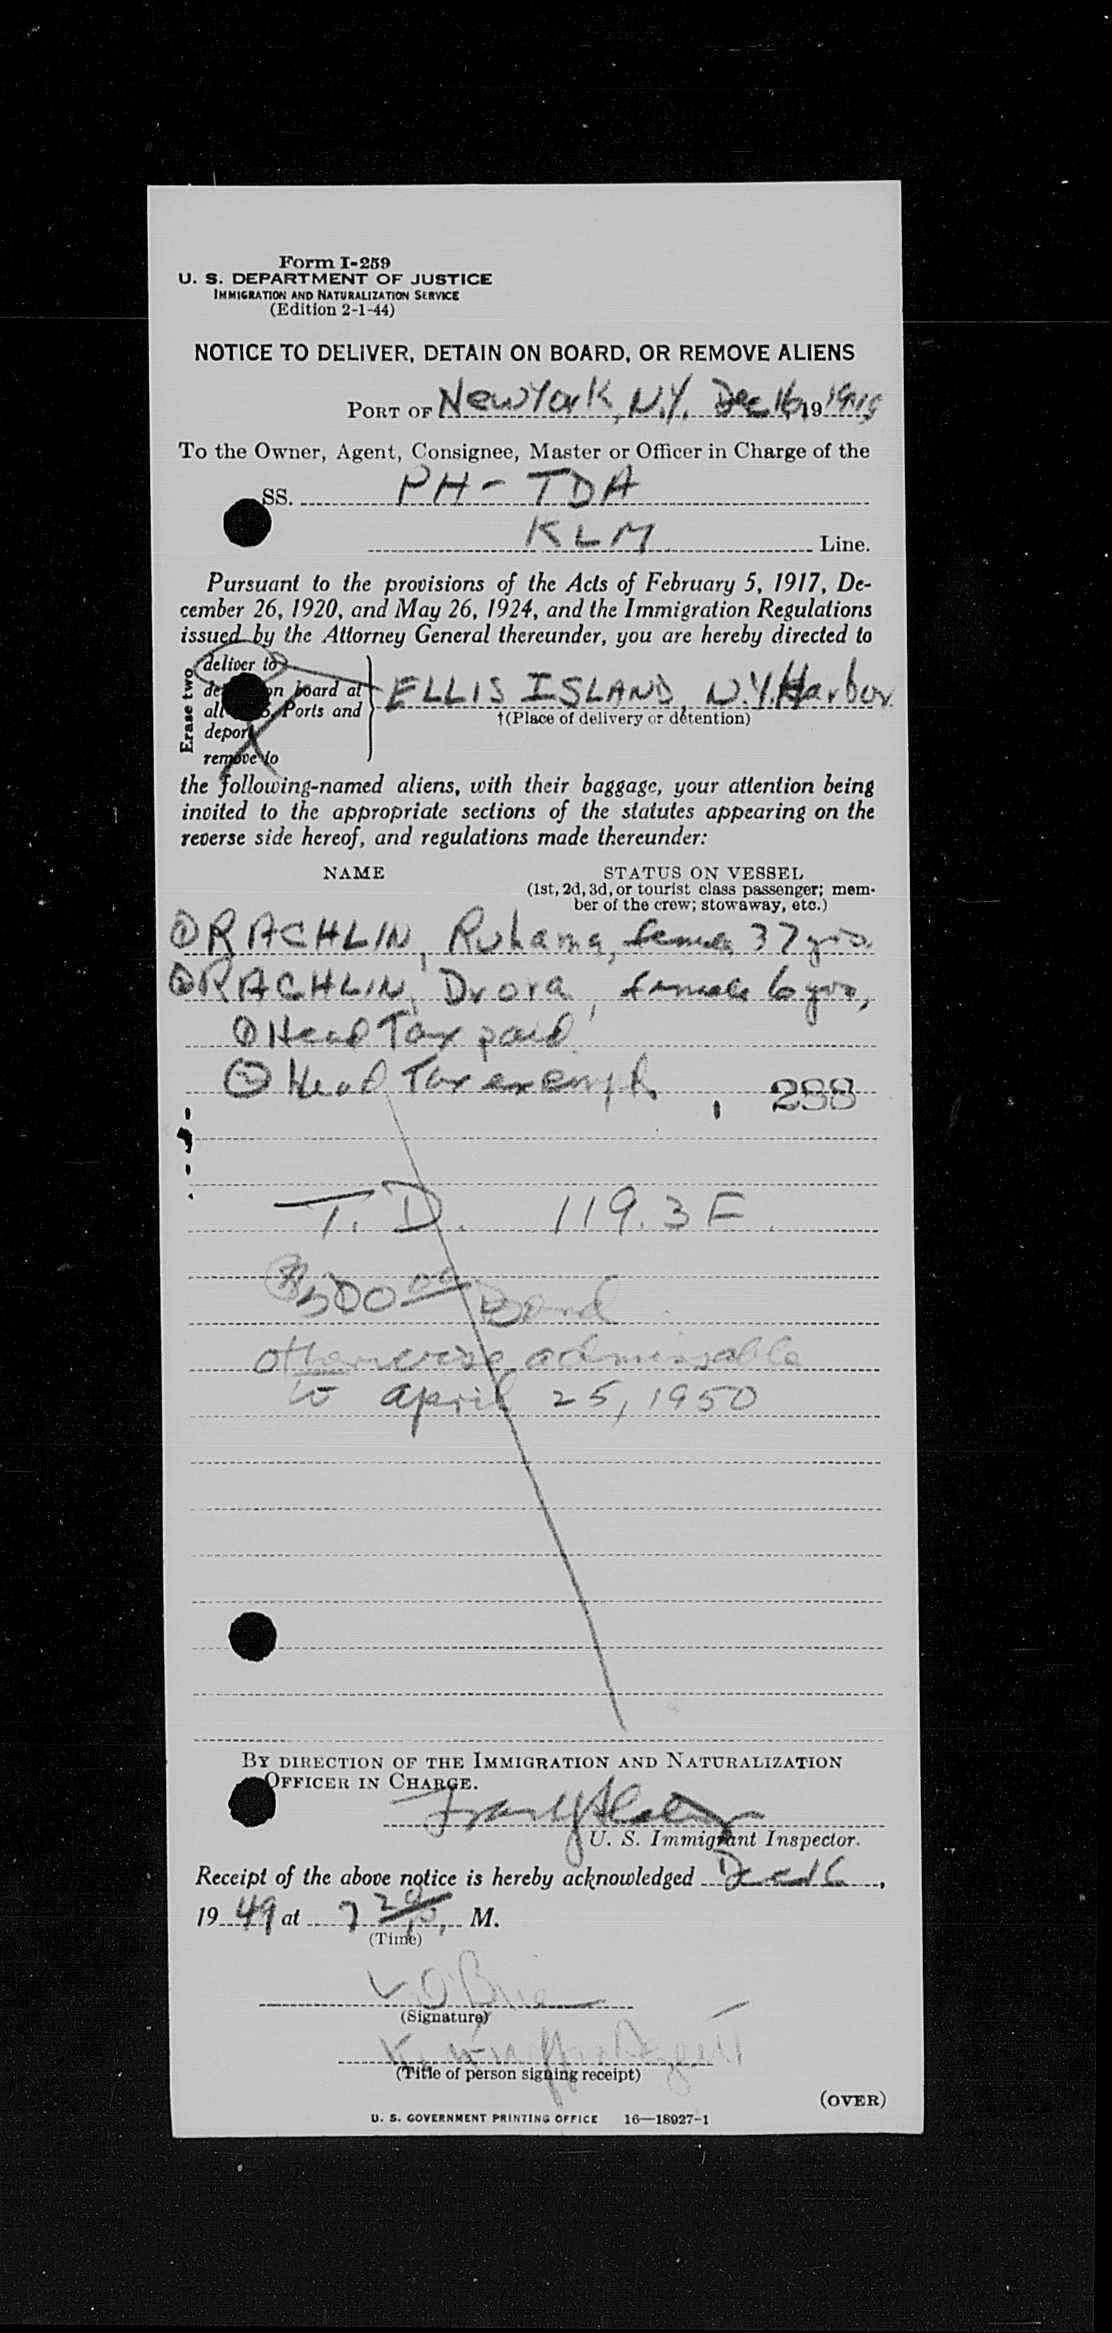 Form I-259
U. S. DEPARTMENT OF JUSTICE
IMMIGRATION AND NATURALIZATION SERVICE
(Edition 2-1-44)
NOTICE TO DELIVER, DETAIN ON BOARD, OR REMOVE ALIENS
PORT OF New York, N.Y. Dec 16, 19
To the Owner, Agent, Consignee, Master or Officer in Charge of the
SS. PH-TDA
KLM Line.
Pursuant to the provisions of the Acts of February 5, 1917, De-
cember 26, 1920, and May 26, 1924, and the Immigration Regulations
issued by the Attorney General thereunder, you are hereby directed to
Erase two
deliver to
on board at ELLIS ISLAND, N.Y. Harbor
Ports and †(Place of delivery or detention)
depor
remove to
the following-named aliens, with their baggage, your attention being
invited to the appropriate sections of the statutes appearing on the
reverse side hereof, and regulations made thereunder:
NAME STATUS ON VESSEL
(1st, 2d, 3d, or tourist class passenger; mem-
ber of the crew; stowaway, etc.)
① RACHLIN, Ruhama, female 37 yrs.
② RACHLIN, Drora, female 6 yrs,
① Head Tax paid
② Head Tax exempt
288
T. D. 119.3 F.
$500 00 Bond
otherwise admissable
to april 25, 1950
BY DIRECTION OF THE IMMIGRATION AND NATURALIZATION
OFFICER IN CHARGE.
U. S. Immigrant Inspector.
Receipt of the above notice is hereby acknowledged Dec 16,
19 49 at 7 20 P. M.
(Time)
O'Brien
(Signature)
(Title of person signing receipt)
(OVER)
U. S. GOVERNMENT PRINTING OFFICE 16—18027-1